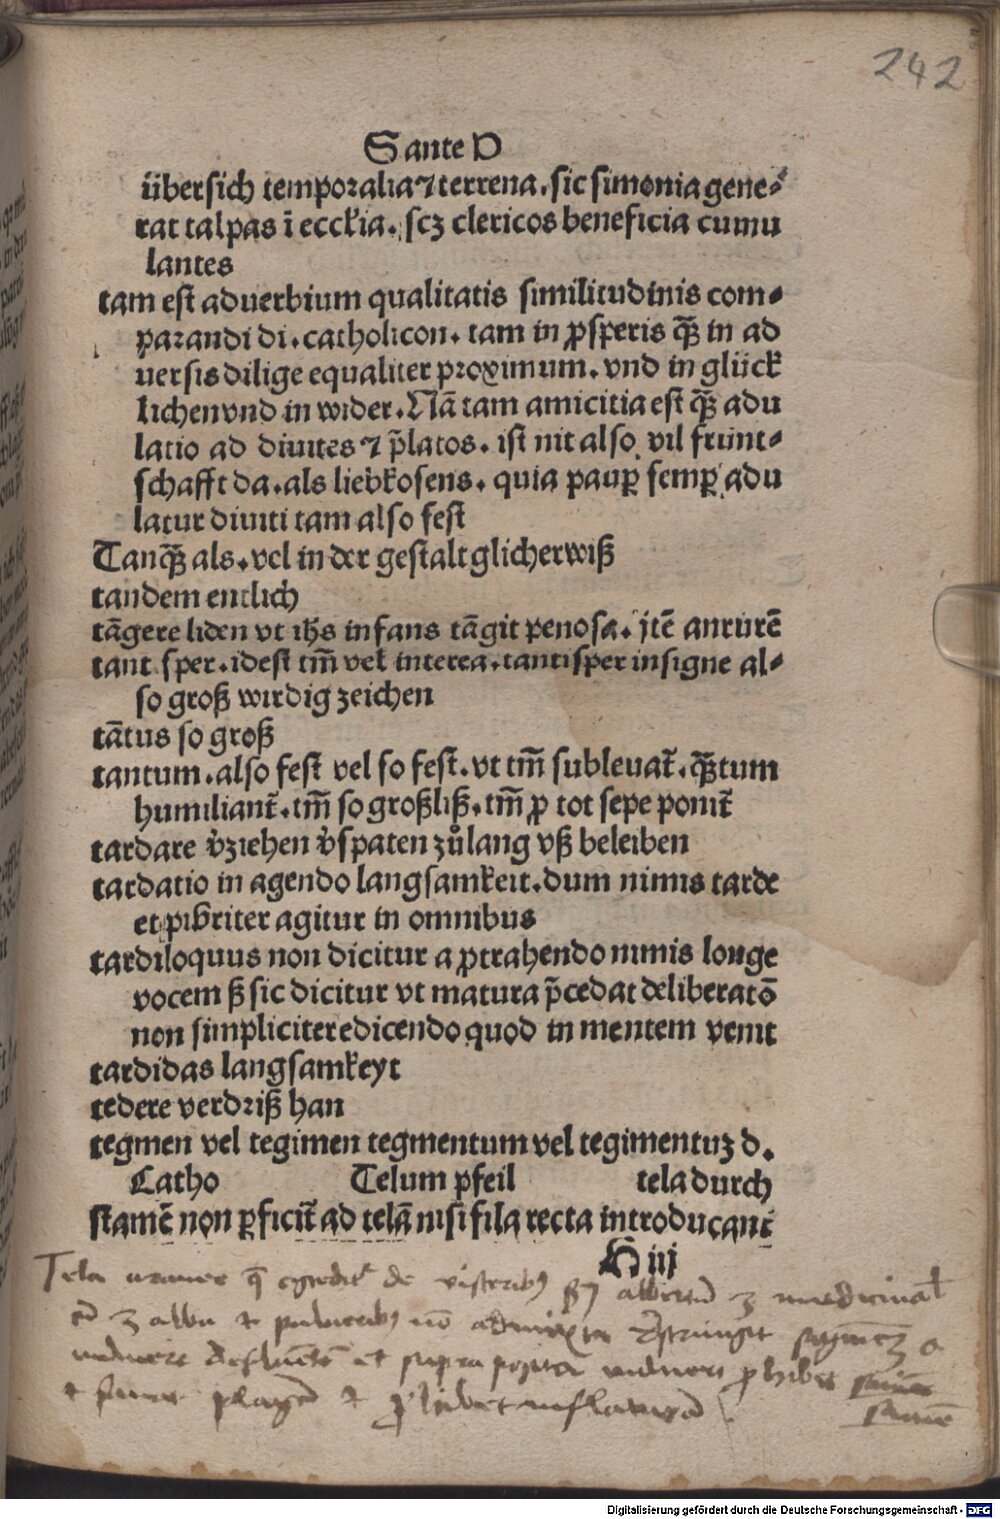 242
Sante D
übersich temporalia ⁊ terrena. sic simonia gene⸗
rat talpas ī eccłia. scꝫ clericos beneficia cumu
lantes
tam est aduerbium qualitatis similitudinis com⸗
parandi di. catholicon. tam in ꝓsperis q̄ꝫ in ad
uersis dilige equaliter proximum. vnd in glück
lichen vnd in wider. Nā tam amicitia est q̄ꝫ adu
latio ad diuites ⁊ p̄latos. ist nit also vil frünt⸗
schafft da. als liebkosens. quia pauꝑ semꝑ adu
latur diuiti tam also fest
Tanq̄ꝫ als. vel in der gestalt glicherwiß
tandem entlich
tāgere liden vt ihs infans tāgit penosa. jtē anrürē
tant sper. idest tm̄ vel interea. tantisper insigne al⸗
so groß wirdig zeichen
tātus so groß
tantum. also fest vel so fest. vt tm̄ subleuat̄. q̄ꝫtum
humiliant̄. tm̄ so großliß. tm̄ ꝓ tot sepe ponit̄
tardare v̉ziehen v̉spaten zůlang vß beleiben
tardatio in agendo langsamkeit. dum nimis tarde
et pigriter agitur in omnibus
tardiloquus non dicitur a ꝓtrahendo nimis longe
vocem ß sic dicitur vt matura p̄cedat deliberatō
non simpliciter edicendo quod in mentem venit
tardidas langsamkeyt
tedere verdriß han
tegmen vel tegimen tegmentum vel tegimentuꝫ d.
Catho Telum pfeil tela durch
stamē non ꝑficit̄ ad telā nisi fila recta introducant̄
H iij
Tela aranee q̄ egredit̉ de visceribꝰ
ꝓhibet
Digitalisierung gefördert durch die Deutsche Forschungsgemeinschaft - DFG